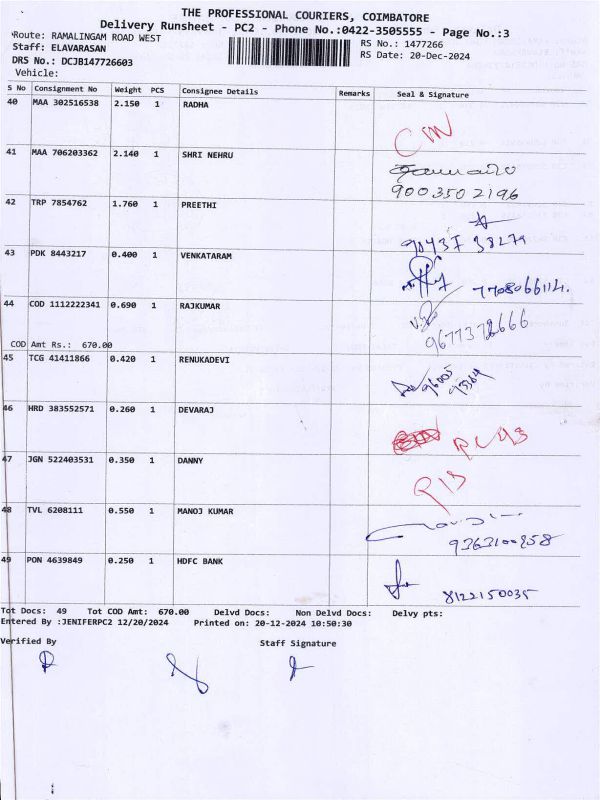 THE PROFESSIONAL COURIERS, COIMBATORE
Delivery Runsheet - PC2 - Phone No.:0422-3505555 - Page No.:3
Route: RAMALINGAM ROAD WEST
RS No.: 1477266
Staff: ELAVARASAN
RS Date: 20-Dec-2024
DRS No.: DCJB147726603
Vehicle:
S No Consignment No Weight PCS Consignee Details Remarks Seal & Signature
40 MAA 302516538 2.150 1 RADHA
41 MAA 706203362 2.140 1 SHRI NEHRU
9003502196
42 TRP 7854762 1.760 1 PREETHI
43 PDK 8443217 0.400 1 VENKATARAM
7708066114.
44 COD 1112222341 0.690 1 RAJKUMAR
9677378666
COD Amt Rs.: 670.00
45 TCG 41411866 0.420 1 RENUKADEVI
46 HRD 383552571 0.260 1 DEVARAJ
47 JGN 522403531 0.350 1 DANNY
48 TVL 6208111 0.550 1 MANOJ KUMAR
9363100958
49 PON 4639849 0.250 1 HDFC BANK
8122150035
Tot Docs: 49 Tot COD Amt: 670.00 Delvd Docs: Non Delvd Docs: Delvy pts:
Entered By :JENIFERPC2 12/20/2024 Printed on: 20-12-2024 10:50:30
Verified By Staff Signature